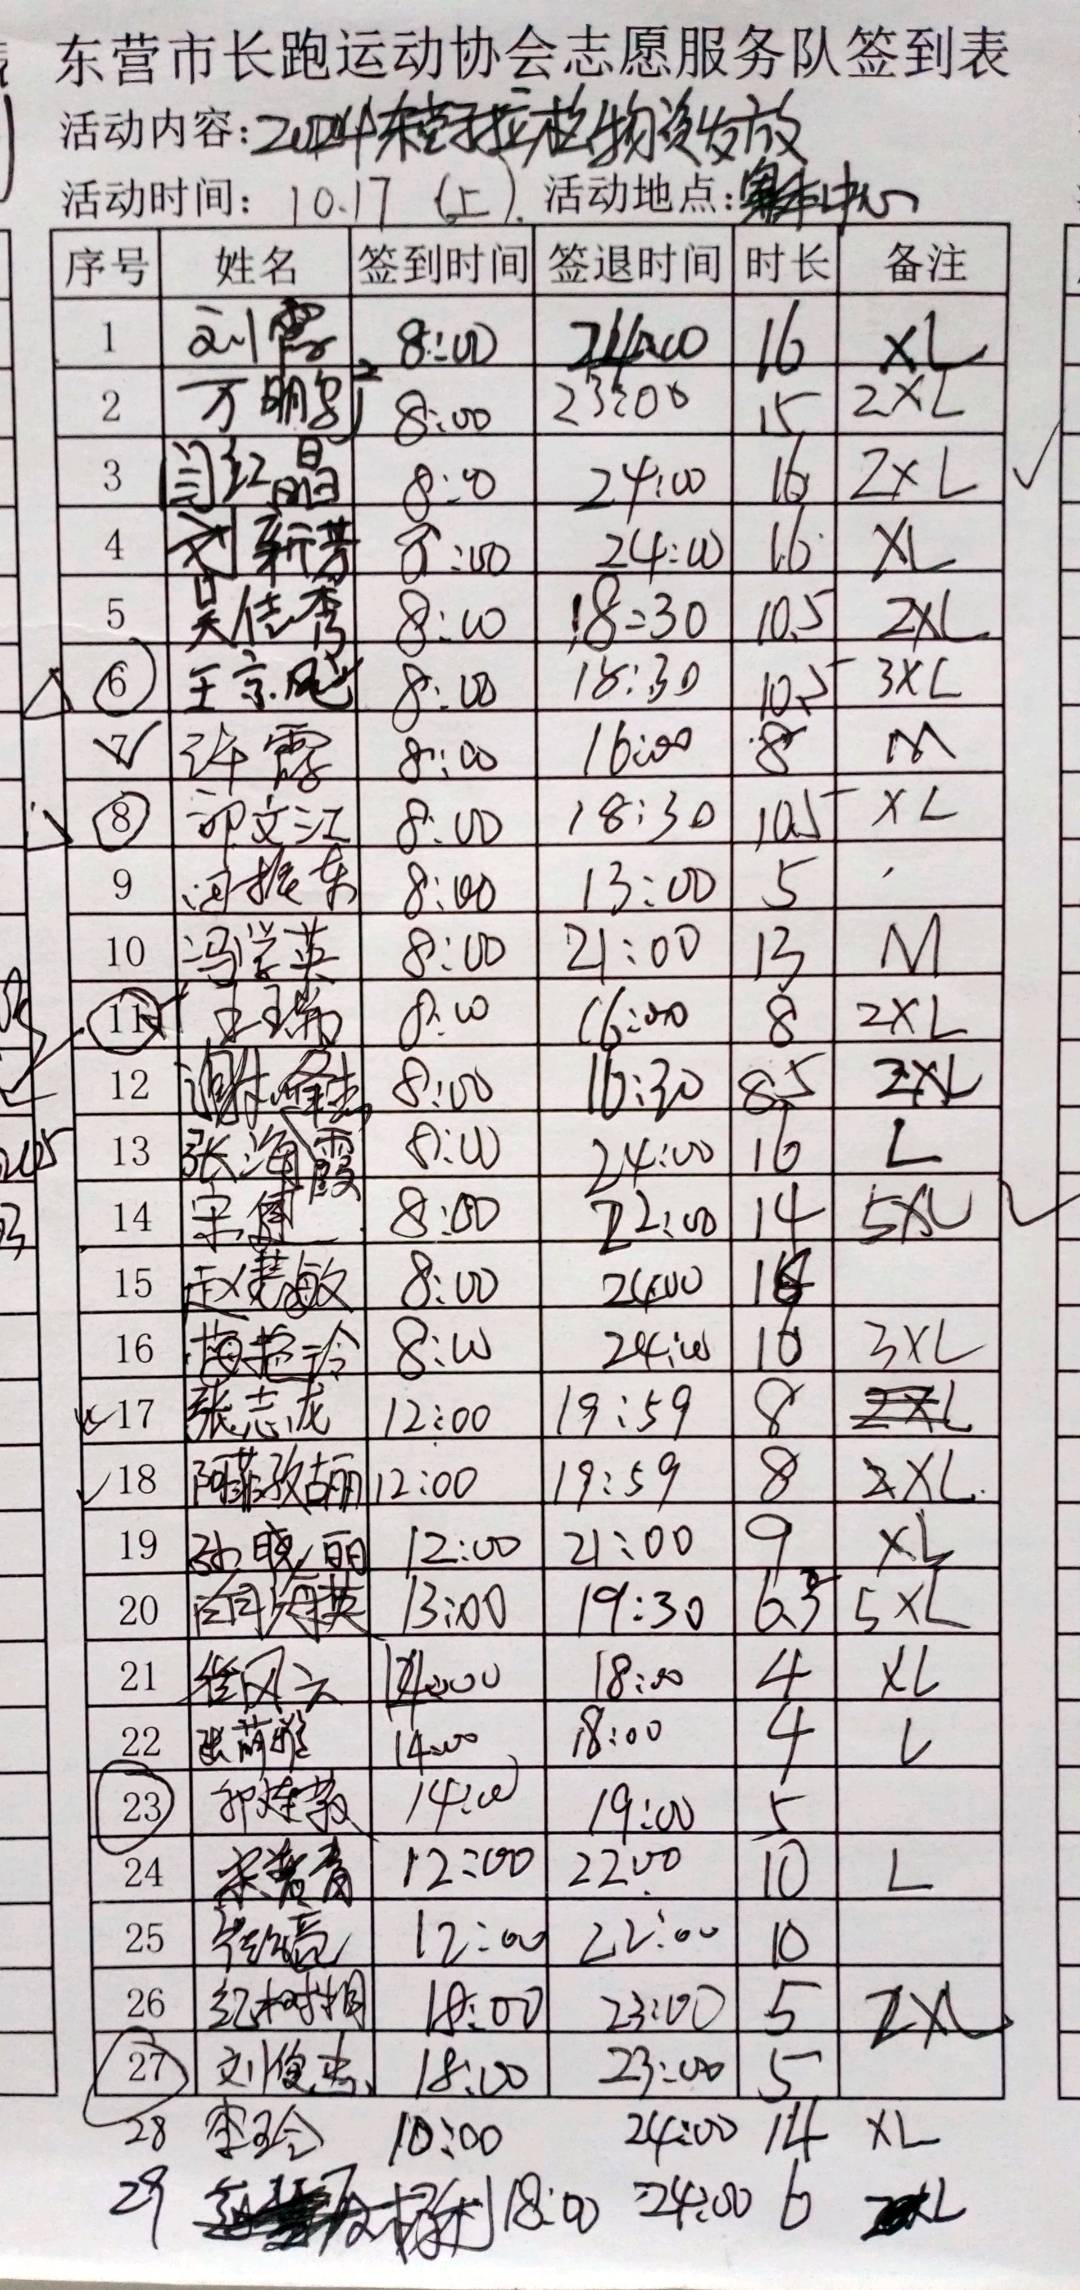 东营市长跑运动协会志愿服务队签到表
活动内容:2024东营马拉松物资发放
活动时间: 10.17 (上). 活动地点:中心
序号 姓名 签到时间 签退时间 时长 备注
1 刘霞 8:00 24:00 16 XL
2 8:00 23:00 15 2XL
3 闫红晶 8:00 24:00 16 2XL
4 刘新芳 8:00 24:00 16 XL
5 吴佳秀 8:00 18:30 10.5 2XL
6 王京飑 8:00 18:30 10.5 3XL
7 许霞 8:00 16:00 8 M
8 邵文江 8:00 18:30 10.5 XL
9 振东 8:00 13:00 5
10 冯学英 8:00 21:00 13 M
11 王瑞 8:00 16:00 8 2XL
12 谢峰杰 8:00 16:30 8.5 2XL
13 张海霞 8:00 24:00 16 L
14 宋健 8:00 22:00 14 5XL
15 赵慧敏 8:00 24:00 16
16 梅艳玲 8:00 24:00 16 3XL
17 张志龙 12:00 19:59 8 2XL
18 阿菲孜古丽 12:00 19:59 8 2XL
19 孙晓丽 12:00 21:00 9 XL
20 闫海英 13:00 19:30 6.5 5XL
21 徐风云 14:00 18:00 4 XL
22 张萌雅 14:00 18:00 4 L
23 14:00 19:00 5
24 12:00 22:00 10 L
25 12:00 22:00 10
26 纪树相 18:00 23:00 5 2XL
27 刘俊杰 18:00 23:00 5
28 李玲 10:00 24:00 14 XL
29 18:00 24:00 6 XL